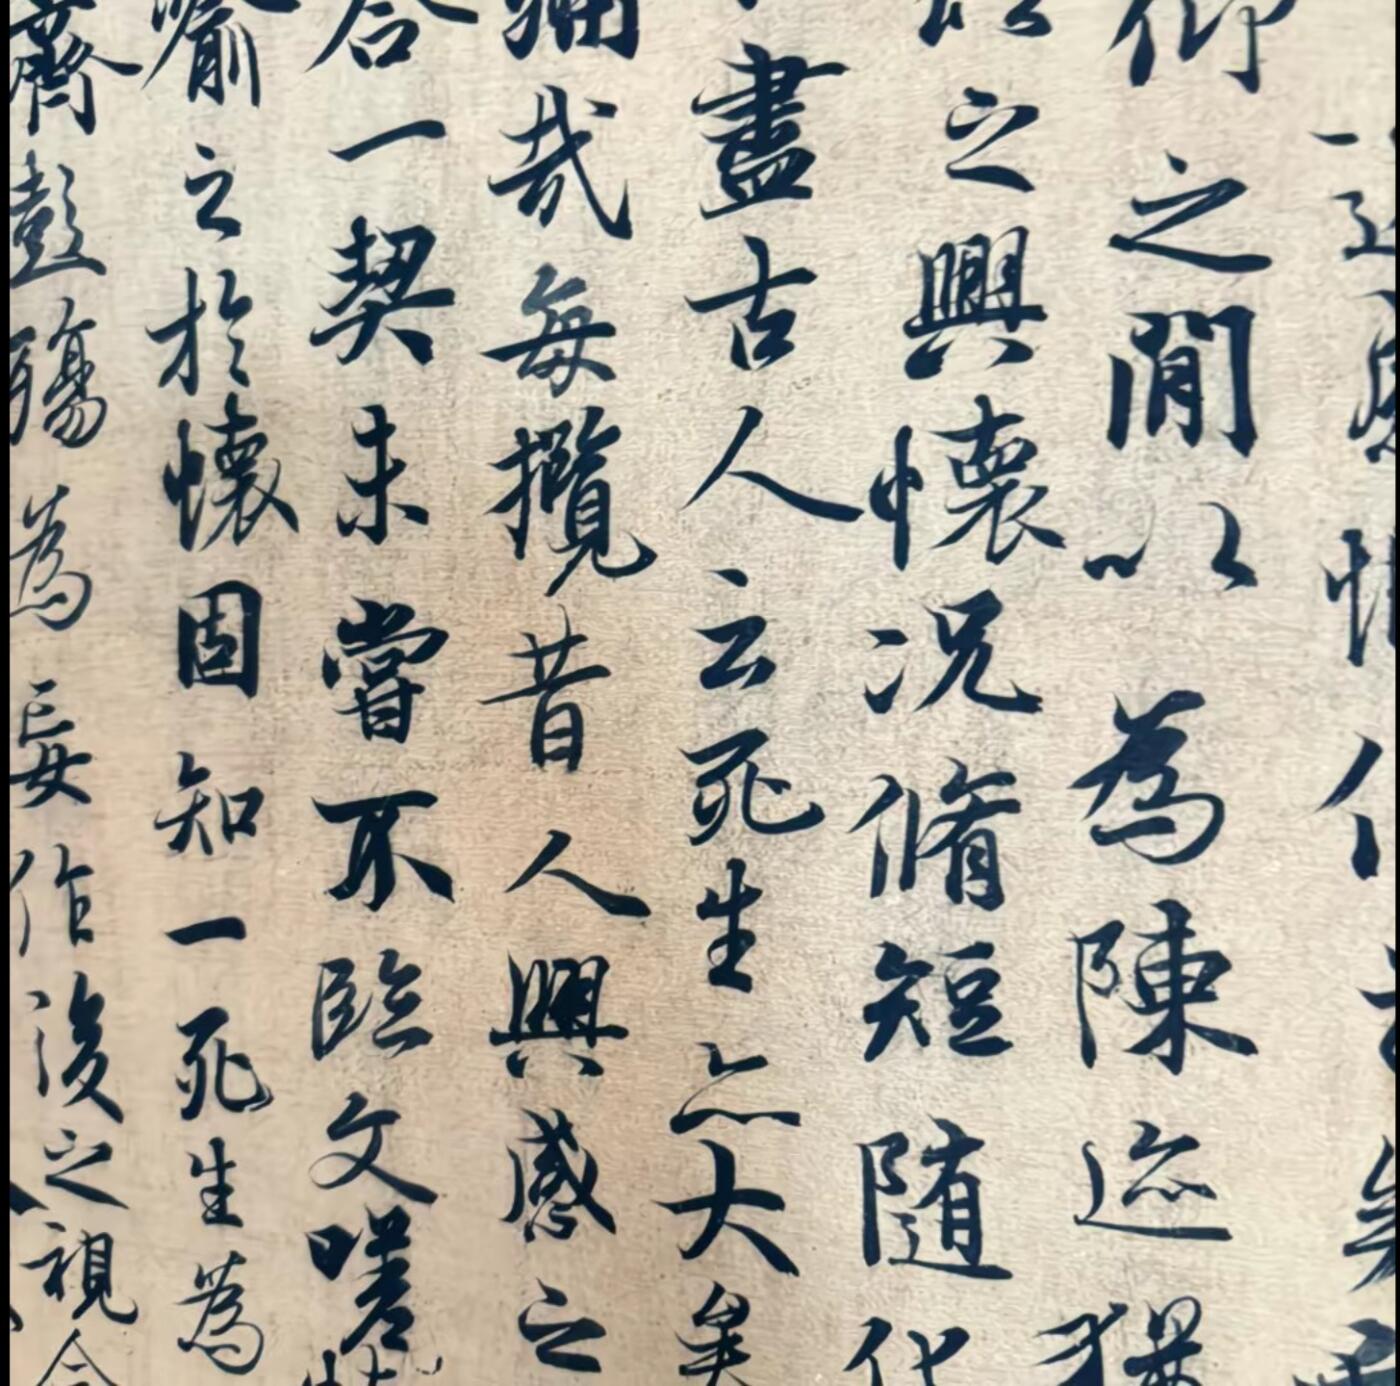 仰之閒以為陳迹猶
以之興懷况脩短随化
盡古人云死生亦大矣
痛哉每攬昔人興感之
合一契未嘗不臨文嗟
喻之於懷固知一死生為
齊彭殤為妄作後之視今